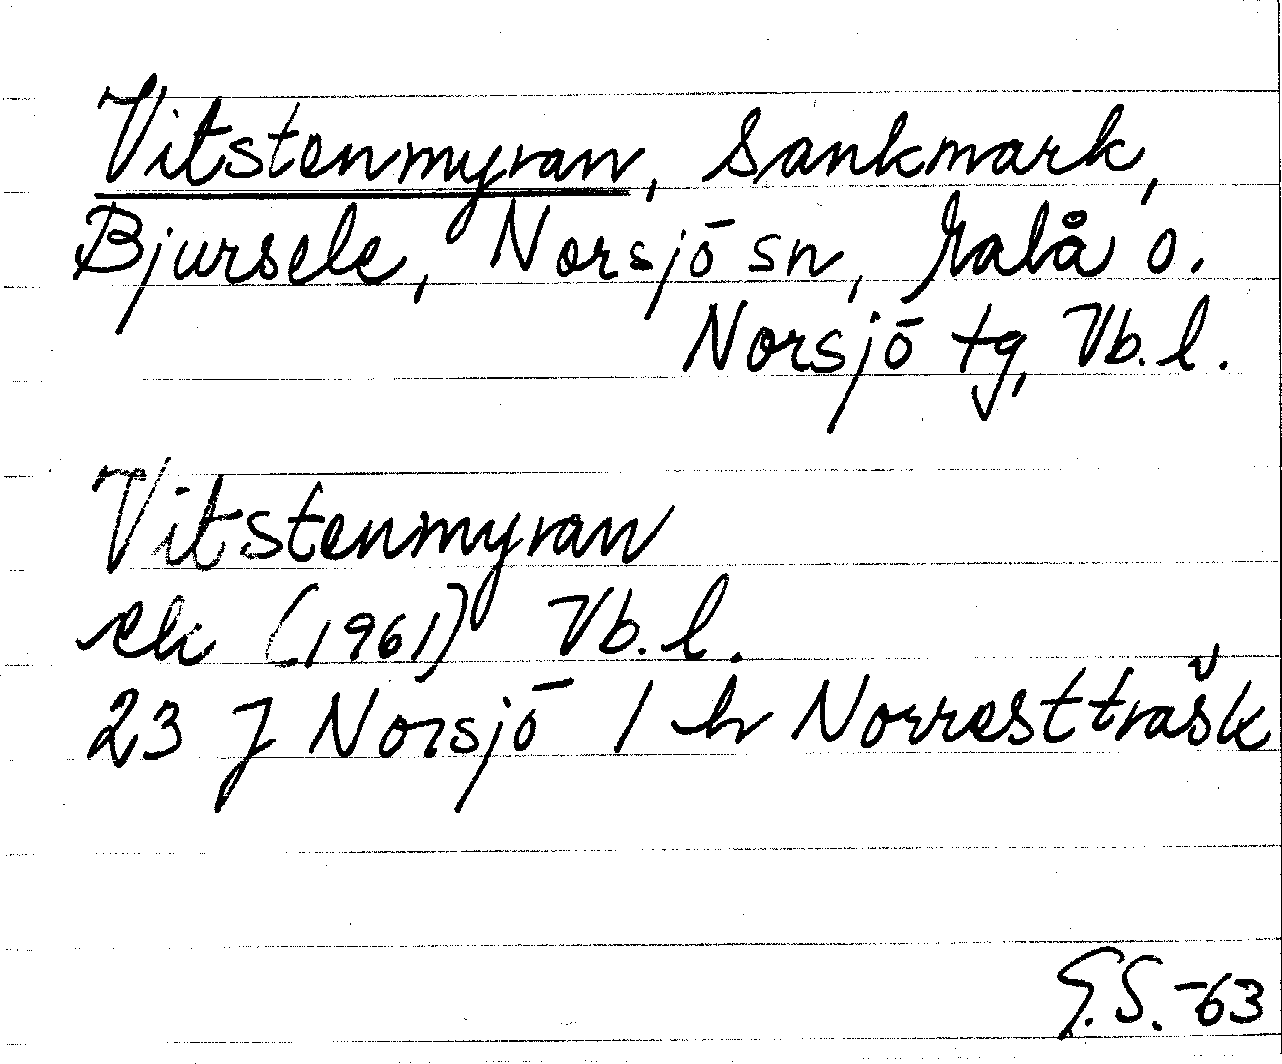 Vitstenmyran, Sankmark,
Bjursele, Norsjö sn, Malå o.
Norsjö tg, Vb. l.
Vitstenmyran
ek (1961) Vb. l.
23 J Norsjö 1 h Norrestträsk
G.S.-63